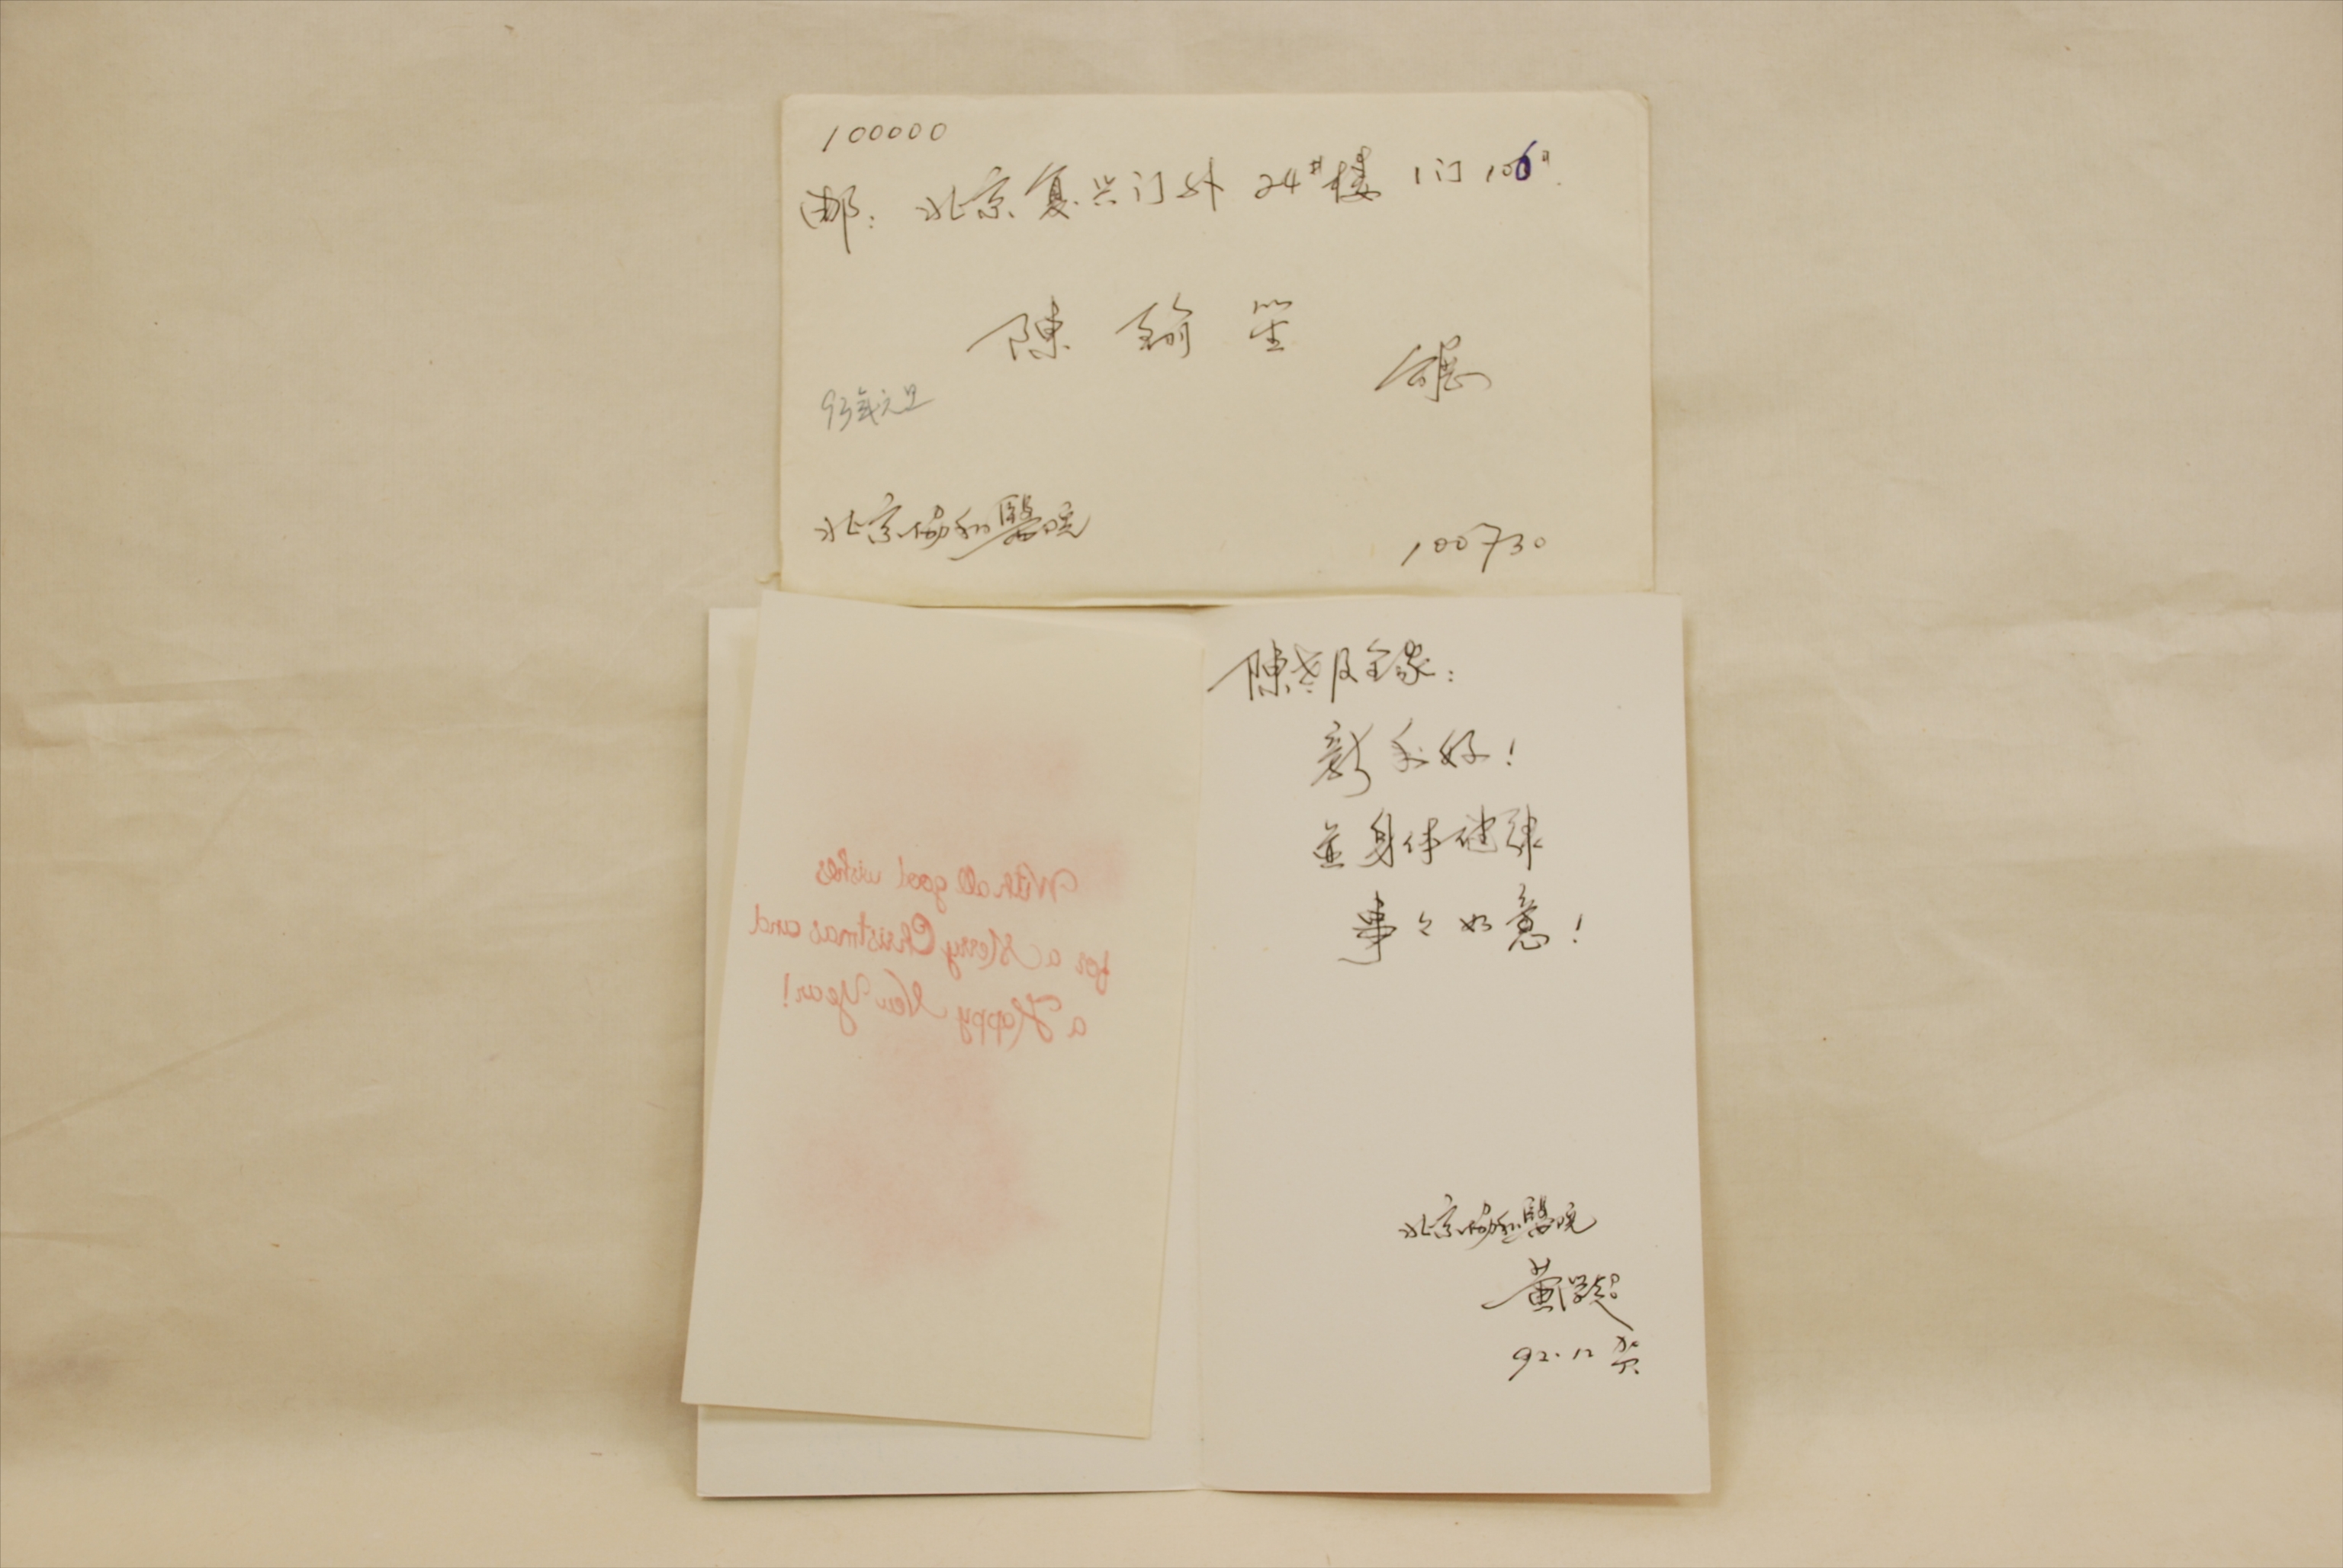 100000
邮: 北京复兴门外 24#楼 1门 106#
陳 翰 笙
93年元旦
北京協和醫院
100730
陳老及全家:
新年好!
並身体健康
事々如意!
With all good wishes
for a Merry Christmas and
a Happy New Year!
北京協和醫院
黄
92.12 贺